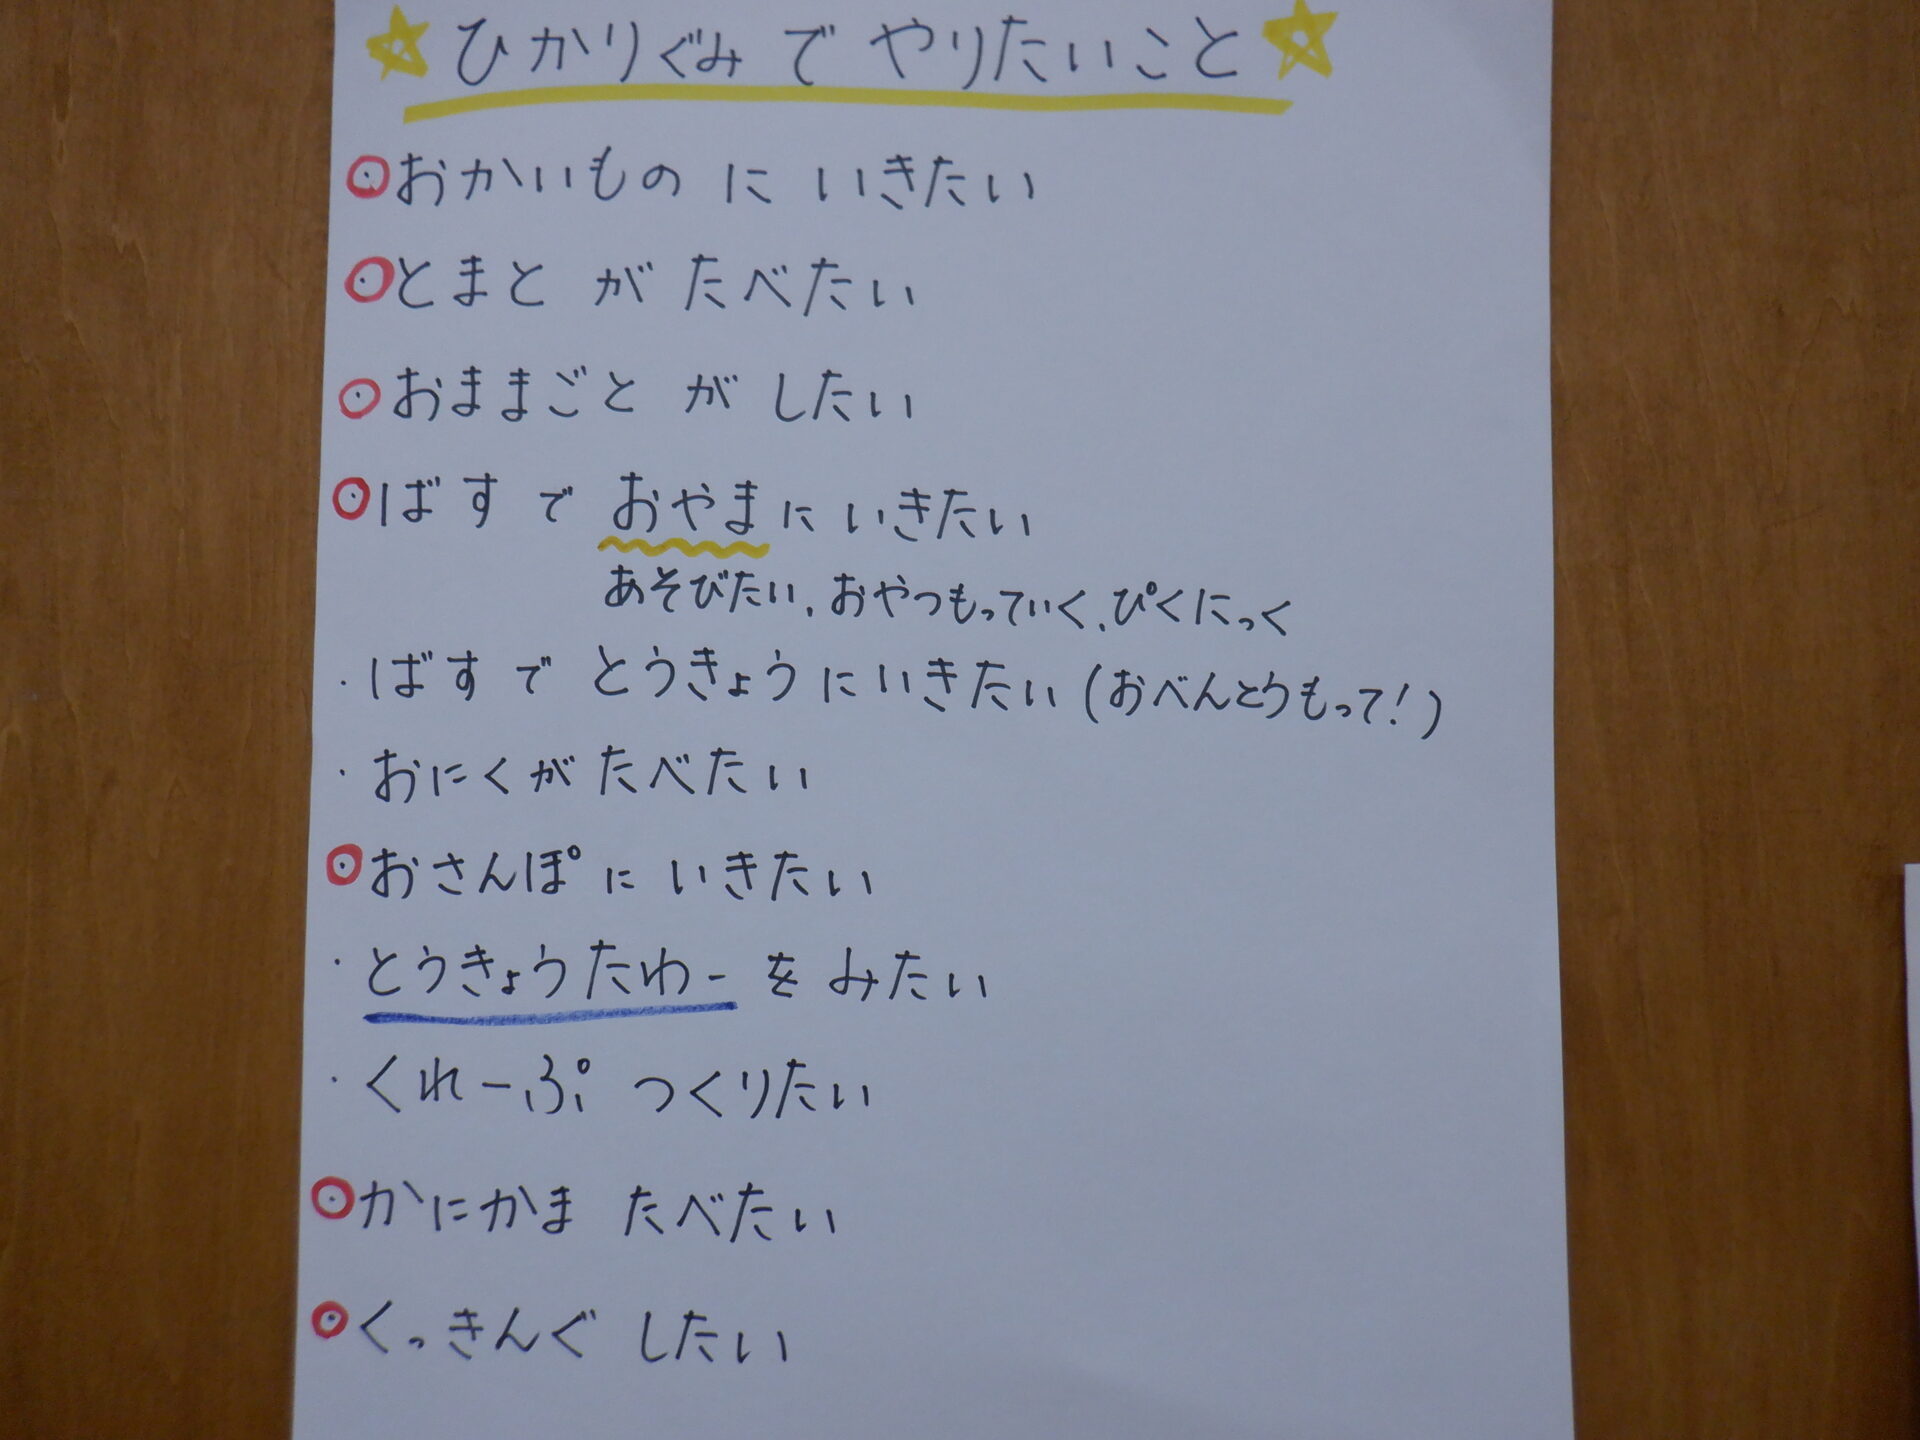 ☆ひかりぐみ で やりたいこと☆
・おかいもの に いきたい
・とまと が たべたい
・おままごと が したい
・ばす で おやまに いきたい
あそびたい、おやつもっていく、ぴくにっく
・ばす で とうきょうに いきたい (おべんとうもって!)
・おにくが たべたい
・おさんぽに いきたい
・とうきょうたわー を みたい
・くれーぷ つくりたい
・かにかま たべたい
・くっきんぐ したい